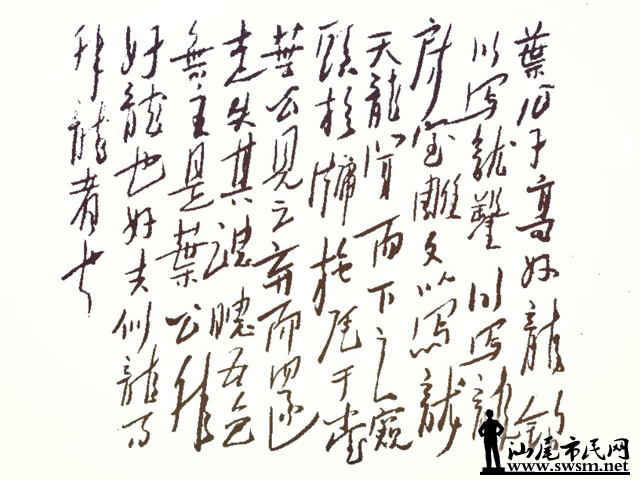 葉公子高好龍鉤
以写龍鑿以写龍
屋室雕文以写龍
天龍聞而下之窺
頭於牖拖尾于堂
葉公見之弃而還
走失其魂魄五色
無主是葉公非
好龍也好夫似龍而
非龍者也
汕尾市民网
www.swsm.net